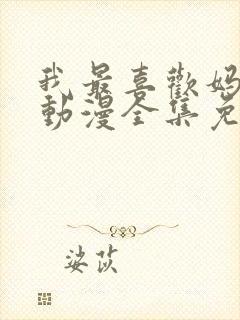 我最喜歡媽
動漫全集免
婆茨